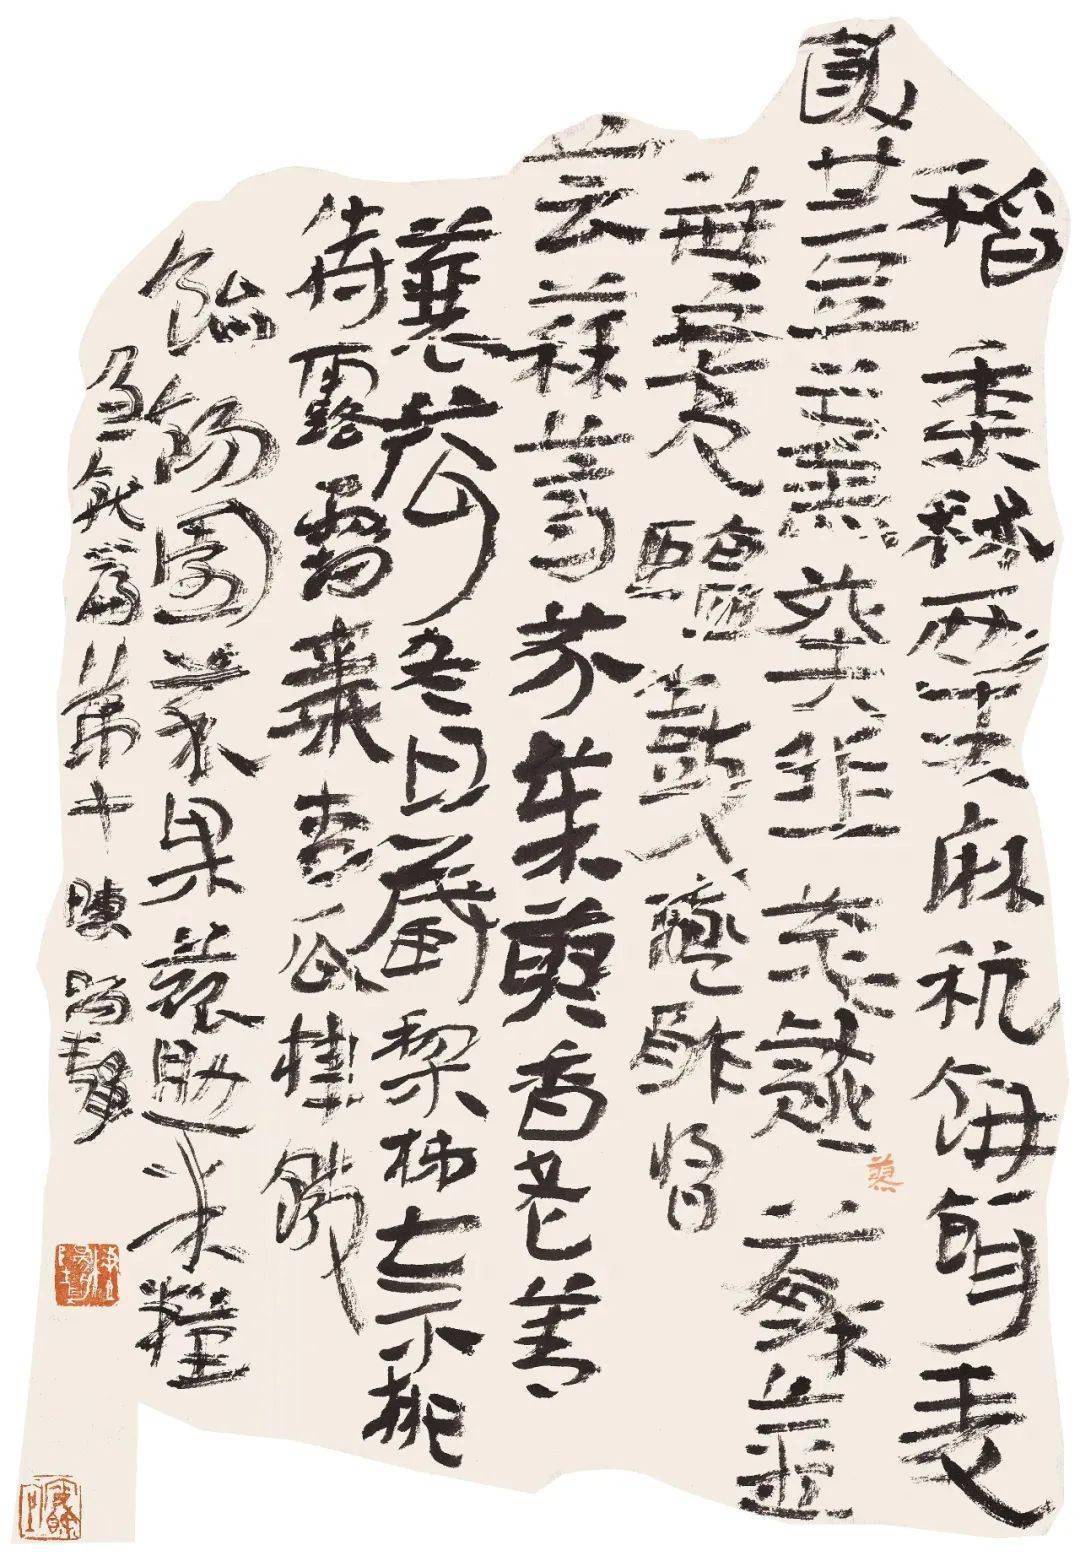 稻黍秫粟麻秔餅餌麥
飯甘豆羹葵韭葱薤蓼蘇薑
蕪荑鹽豉醯酢醬
芸蒜薺芥茱萸香老菁
蘘荷冬日藏梨柿柰桃
待露霜棗杏瓜棣饊
飴餳園菜果蓏助米糧
急就篇第十陳陽靜